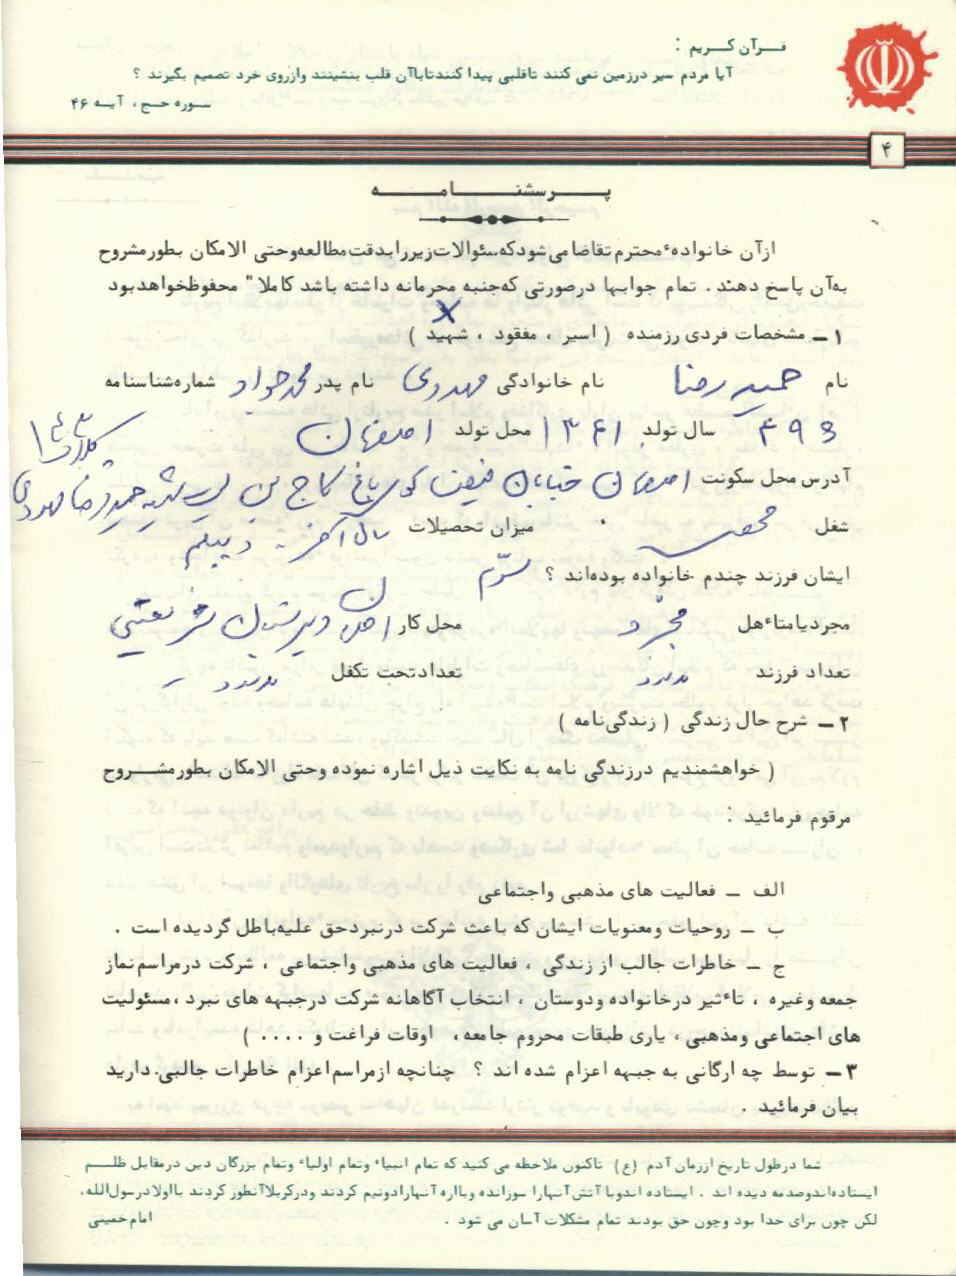 قرآن کریم :
آیا مردم سیر درزمین نمی کنند تاقلبی پیدا کنندتاباآن قلب بنشینند وازروی خرد تصمیم بگیرند ؟
سوره حج ، آیه ۴۶
۴
پرسشنامه
ازآن خانواده ٔ محترم تقاضا می شود که سئوالات زیر را بدقت مطالعه وحتی الامکان بطور مشروح
به آن پاسخ دهند . تمام جوابها درصورتی که جنبه محرمانه داشته باشد کاملا" محفوظ خواهد بود
X
۱ – مشخصات فردی رزمنده ( اسیر ، مفقود ، شهید )
نام حمید رضا نام خانوادگی مهدوی نام پدر محمد جواد شماره شناسنامه
۴۹۳ سال تولد ۱۳۴۱ محل تولد اصفهان
آدرس محل سکونت اصفهان خیابان فیض کوی باغ کاج بن بست شهید حمید رضا مهدوی
شغل محصل میزان تحصیلات سال آخر دیپلم
ایشان فرزند چندم خانواده بوده اند ؟ سوّم
مجرد یا متاءهل مجرّد محل کار دبیرستان شریعتی
تعداد فرزند ندارد تعداد تحت تکفل ندارد
۲ – شرح حال زندگی ( زندگی نامه )
( خواهشمندیم درزندگی نامه به نکایت ذیل اشاره نموده وحتی الامکان بطور مشروح
مرقوم فرمائید :
الف – فعالیت های مذهبی واجتماعی
ب – روحیات ومعنویات ایشان که باعث شرکت درنبرد حق علیه باطل گردیده است .
ج – خاطرات جالب از زندگی ، فعالیت های مذهبی واجتماعی ، شرکت درمراسم نماز
جمعه وغیره ، تاءثیر درخانواده ودوستان ، انتخاب آگاهانه شرکت درجبهه های نبرد ، مسئولیت
های اجتماعی ومذهبی ، یاری طبقات محروم جامعه ، اوقات فراغت و .... )
۳ – توسط چه ارگانی به جبهه اعزام شده اند ؟ چنانچه ازمراسم اعزام خاطرات جالبی دارید
بیان فرمائید .
شما درطول تاریخ اززمان آدم (ع) تاکنون ملاحظه می کنید که تمام انبیاء وتمام اولیاء وتمام بزرگان دین درمقابل ظلم
ایستاده اند وصدمه دیده اند . ایستاده اند وبا آتش آنهارا سوزانده وبااره آنهارا دونیم کردند ودرکربلا آنطور کردند بااولاد رسول الله،
لکن چون برای خدا بود وچون حق بودند تمام مشکلات آسان می شود . امام خمینی